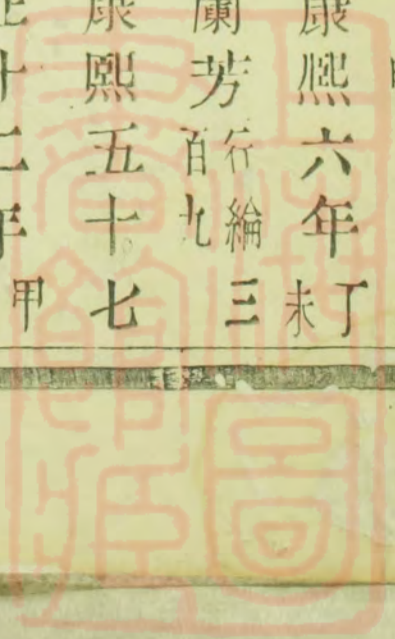 康熙六年丁未
蘭芳行綸三百九
康熙五十七
十二年甲